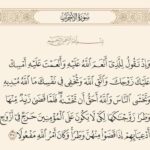 سُورَةُ الأَحْزَابِ
وَإِذْ تَقُولُ لِلَّذِىٓ أَنْعَمَ ٱللَّهُ عَلَيْهِ وَأَنْعَمْتَ عَلَيْهِ أَمْسِكْ
عَلَيْكَ زَوْجَكَ وَٱتَّقِ ٱللَّهَ وَتُخْفِى فِى نَفْسِكَ مَا ٱللَّهُ مُبْدِيهِ
وَتَخْشَى ٱلنَّاسَ وَٱللَّهُ أَحَقُّ أَن تَخْشَىٰهُ فَلَمَّا قَضَىٰ زَيْدٌ مِّنْهَا
وَطَرًا زَوَّجْنَٰكَهَا لِكَىْ لَا يَكُونَ عَلَى ٱلْمُؤْمِنِينَ حَرَجٌ فِىٓ أَزْوَٰجِ
أَدْعِيَآئِهِمْ إِذَا قَضَوْا۟ مِنْهُنَّ وَطَرًا وَكَانَ أَمْرُ ٱللَّهِ مَفْعُولًا